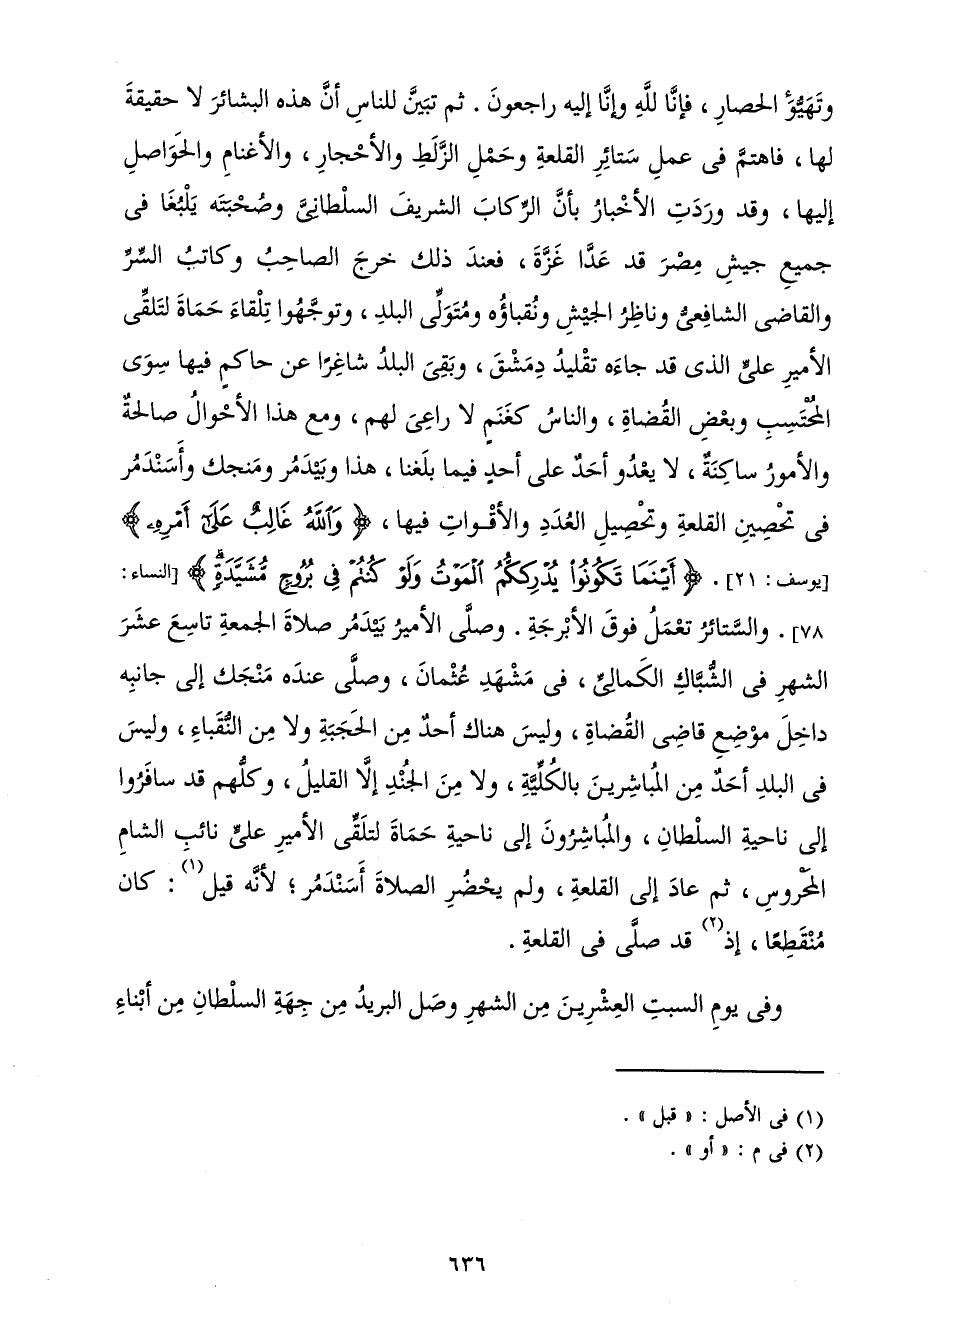 وتَهَيُّؤَ الحصارِ ، فإنَّا للَّهِ وإنَّا إليه راجعونَ . ثم تبَينَّ للناسِ أنَّ هذه البشائرَ لا حقيقةَ
لها ، فاهتمَّ فى عملِ ستَائرِ القلعةِ وحَمْلِ الزَّلَطِ والأحْجارِ ، والأغنامِ والحَواصلِ
إليها ، وقد ورَدَتِ الأخْبارُ بأنَّ الرِّكابَ الشريفَ السلْطانِىَّ وصُحْبَتَه يَلْبُغَا فى
جميعِ جيشِ مِصْرَ قد عَدَّا غَزَّةَ ، فعندَ ذلك خرجَ الصاحِبُ وكاتبُ السِّرِّ
والقاضى الشافِعىُّ وناظِرُ الجيْشِ ونُقباؤُه ومُتَوَلِّى البلدِ ، وتوجَّهُوا تِلْقاءَ حَمَاةَ لتَلقِّى
الأميرِ علىٍّ الذى قد جاءَه تقْليدُ دِمَشْقَ ، وبَقِىَ البلدُ شاغِرًا عن حاكمٍ فيها سِوَى
المُحْتَسِبِ وبعْضِ القُضاةِ ، والناسُ كغَنَمٍ لا راعِىَ لهم ، ومع هذا الأحْوالُ صالحةٌ
والأمورُ ساكِنَةٌ ، لا يعْدُو أحَدٌ على أحدٍ فيما بلَغنا ، هذا وبَيْدَمُر ومَنجك وأَسَنْدَمُر
فى تحْصِينِ القلعةِ وتحْصِيلِ العُدَدِ والأقْواتِ فيها ، ﴿ وَٱللَّهُ غَالِبٌ عَلَىٰٓ أَمْرِهِۦ ﴾
[يوسف : ٢١] . ﴿ أَيْنَمَا تَكُونُواْ يُدْرِككُّمُ ٱلْمَوْتُ وَلَوْ كُنتُمْ فِى بُرُوجٍ مُّشَيَّدَةٍۗ ﴾ [النساء :
٧٨] . والسَّتائرُ تعْمَلُ فوقَ الأبْرجَةِ . وصلَّى الأميرُ بَيْدَمُر صلاةَ الجمعةِ تاسِعَ عشَرَ
الشهرِ فى الشُّبَّاكِ الكَمالِىِّ ، فى مَشْهَدِ عُثْمانَ ، وصلَّى عندَه مَنْجَك إلى جانبِه
داخِلَ موْضِعِ قاضِى القُضاةِ ، وليسَ هناك أحدٌ مِن الحَجَبَةِ ولا مِن النُّقَباءِ ، وليسَ
فى البلدِ أحَدٌ مِن المُباشِرِينَ بالكُلِّيَّةِ ، ولا مِنَ الجُنْدِ إلَّا القليلُ ، وكلُّهم قد سافَرُوا
إلى ناحيةِ السلْطانِ ، والمُباشِرُونَ إلى ناحيةِ حَمَاةَ لتلَقِّى الأميرِ علىٍّ نائبِ الشامِ
المَحْروسِ ، ثم عادَ إلى القلعةِ ، ولم يحْضُرِ الصلاةَ أَسَنْدَمُر ؛ لأنَّه قيل(١) : كان
مُنْقَطِعًا ، إذ(٢) قد صلَّى فى القلعةِ .
وفى يومِ السبتِ العِشْرِينَ مِن الشهرِ وصَل البريدُ مِن جِهَةِ السلْطانِ مِن أبْناءِ
(١) فى الأصل : « قبل » .
(٢) فى م : « أو » .
٦٣٦